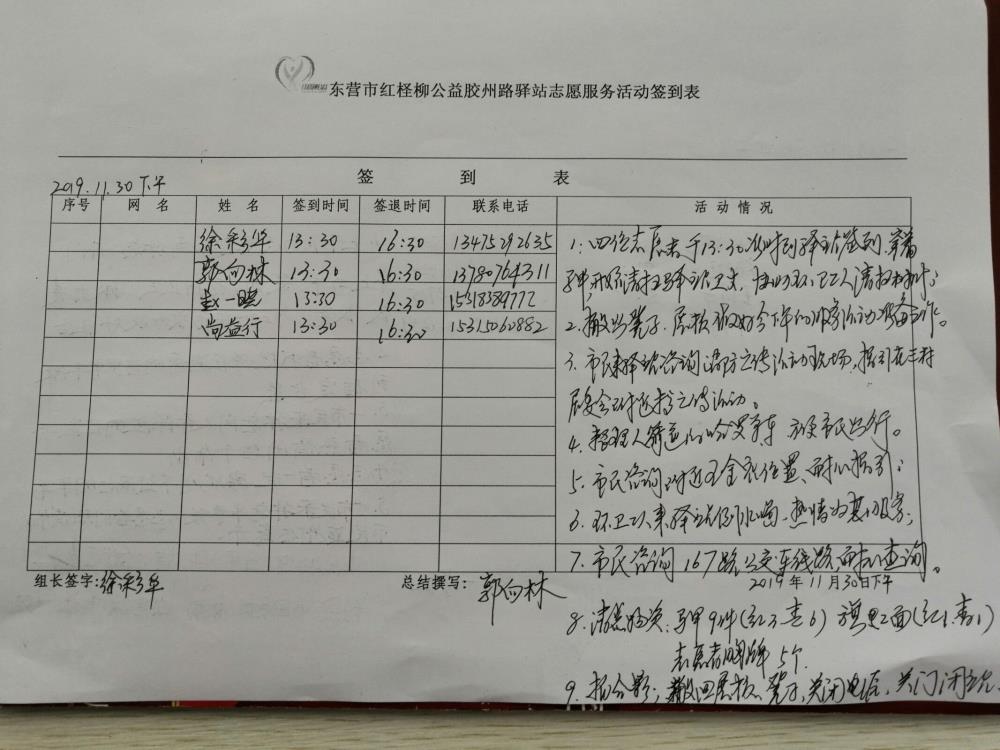 东营市红柽柳公益胶州路驿站志愿服务活动签到表
签 到 表
2019.11.30下午
序号 网名 姓名 签到时间 签退时间 联系电话 活动情况
徐彩华 13:30 16:30 13475292635
郭向林 13:30 16:30 13780764311
赵一晓 13:30 16:30 15318389772
尚益行 13:30 16:30 15315060882
1.四位志愿者于13:30准时到驿站签到,穿着
马甲,开始清扫驿站卫生,协助环卫工人清扫树叶;
2.搬出凳子、展板做好今下午的服务活动准备工作。
3.市民来驿站咨询消防宣传活动现场,指引在丰村
居委会附近搞宣传活动。
4.整理人行道的哈罗单车 方便市民出行。
5.市民咨询附近五金店位置,耐心指引;
6.环卫工人来驿站倒水喝,热情为其服务;
7.市民咨询167路公交车线路,耐心查询。
2019年11月30日下午
组长签字:徐彩华 总结撰写:郭向林
8.清点物资:马甲9件(红3.青6) 旗2面(红1.青1)
志愿者胸牌5个.
9.拍合影;搬回展板、凳子,关闭电源,关门闭站